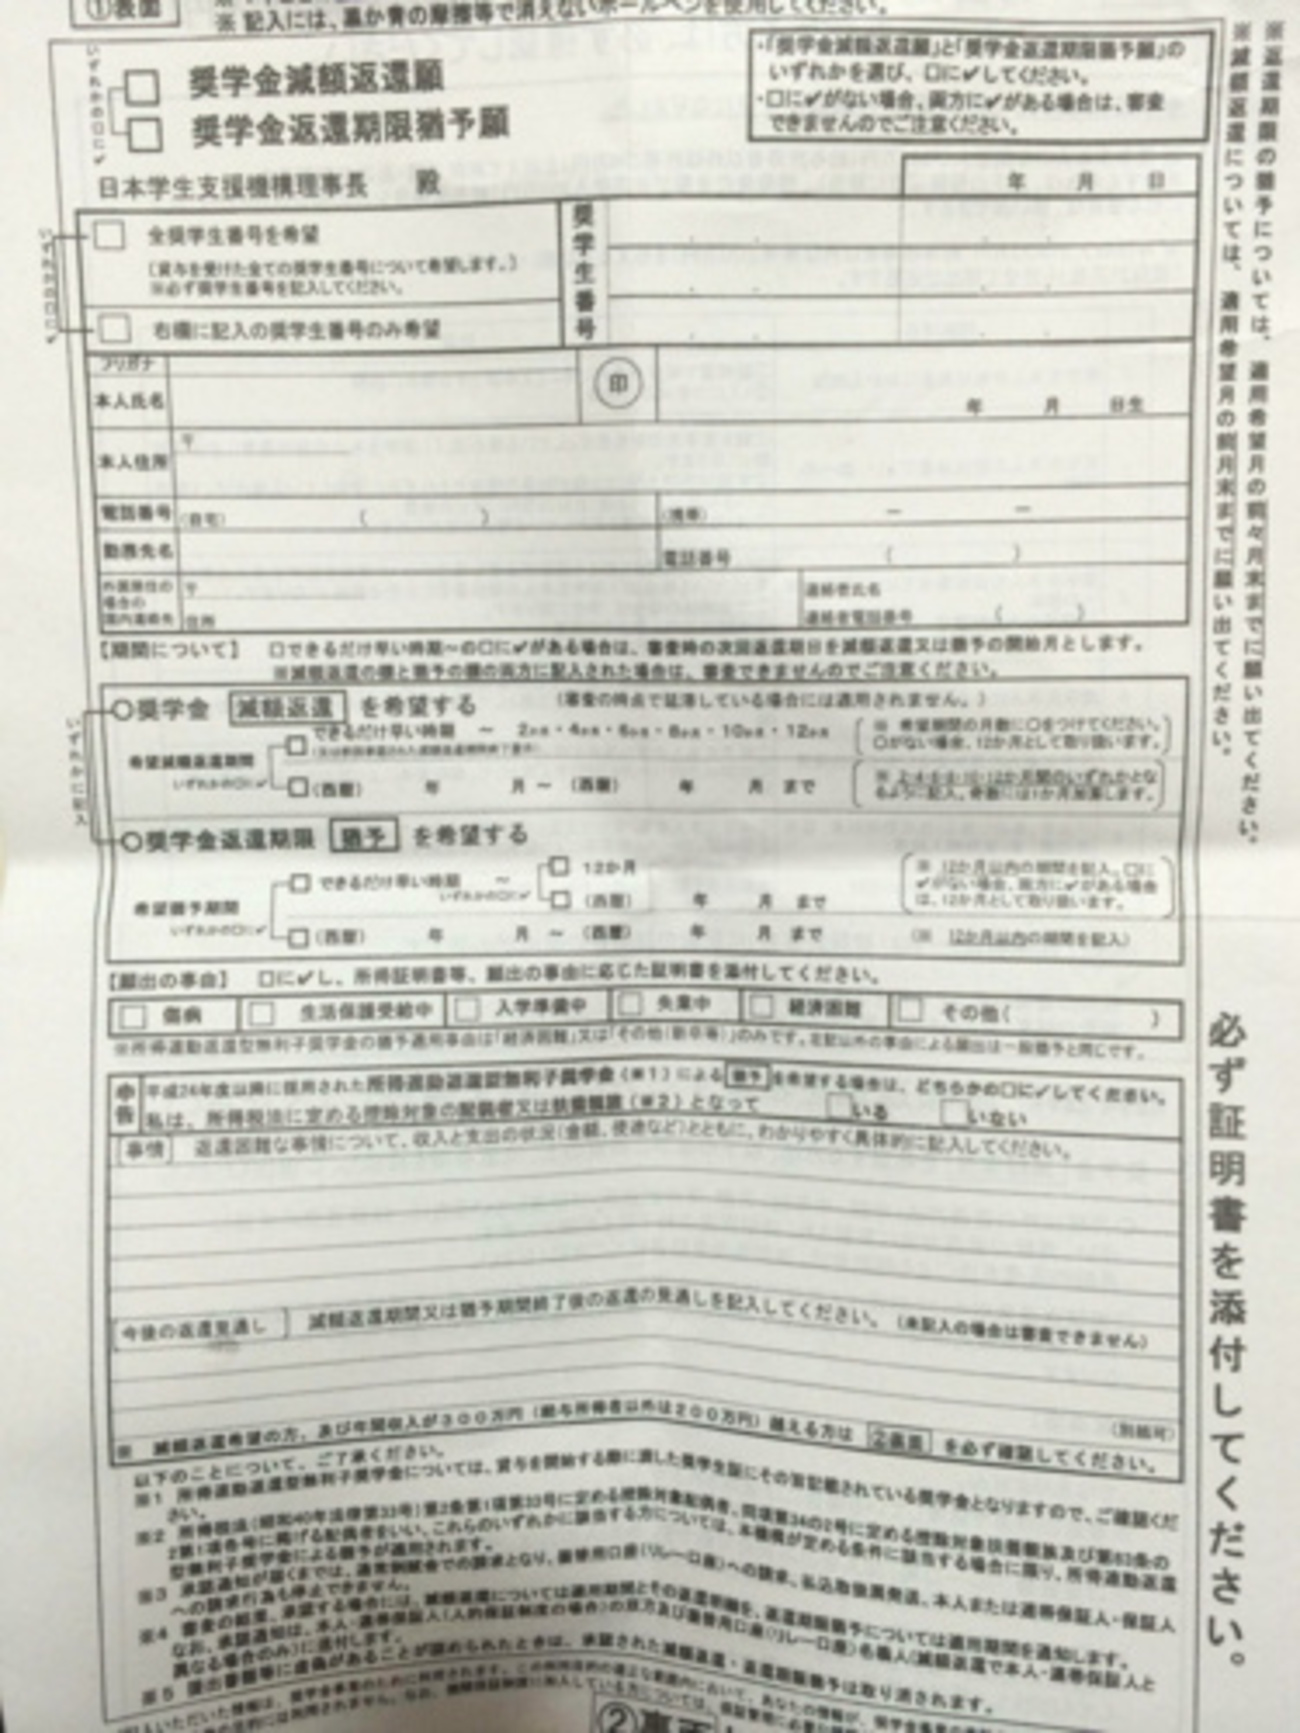 ①表面
※ 記入には、黒か青の摩擦等で消えないボールペンを使用してください。
いずれかの□に✔
□ 奨学金減額返還願
□ 奨学金返還期限猶予願
・「奨学金減額返還願」と「奨学金返還期限猶予願」の
いずれかを選び、□に✔してください。
・□に✔がない場合、両方に✔がある場合は、審査
できませんのでご注意ください。
日本学生支援機構理事長 殿
年 月 日
いずれかの□に✔
□ 全奨学生番号を希望
(貸与を受けた全ての奨学生番号について希望します。)
※必ず奨学生番号を記入してください。
□ 右欄に記入の奨学生番号のみ希望
奨学生番号
フリガナ
本人氏名
印
年 月 日生
本人住所 〒
電話番号 (自宅) ( ) (携帯) － －
勤務先名 電話番号 ( )
外国居住の
場合の
国内連絡先
〒
住所
連絡者氏名
連絡者電話番号 ( )
【期間について】 □できるだけ早い時期～の□に✔がある場合は、審査時の次回返還期日を減額返還又は猶予の開始月とします。
※減額返還の欄と猶予の欄の両方に記入された場合は、審査できませんのでご注意ください。
いずれかに記入
○奨学金 減額返還 を希望する (審査の時点で延滞している場合には適用されません。)
希望減額返還期間
いずれかの□に✔
□ できるだけ早い時期 ～ 2か月・4か月・6か月・8か月・10か月・12か月
(※ 希望期間の月数に○をつけてください。
○がない場合、12か月として取り扱います。)
□ (西暦) 年 月 ～ (西暦) 年 月 まで
(※ 2・4・6・8・10・12か月間のいずれかとな
るように記入。奇数には1か月加算します。)
○奨学金返還期限 猶予 を希望する
希望猶予期間
いずれかの□に✔
□ できるだけ早い時期 ～
いずれかの□に✔
□ 12か月
□ (西暦) 年 月 まで
(※ 12か月以内の期間を記入。□に
✔がない場合、両方に✔がある場合
は、12か月として取り扱います。)
□ (西暦) 年 月 ～ (西暦) 年 月 まで (※ 12か月以内の期間を記入)
【願出の事由】 □に✔し、所得証明書等、願出の事由に応じた証明書を添付してください。
□ 傷病 □ 生活保護受給中 □ 入学準備中 □ 失業中 □ 経済困難 □ その他( )
※所得連動返還型無利子奨学金の猶予適用事由は「経済困難」又は「その他(新卒等)」のみです。左記以外の事由による願出は一般猶予と同じです。
申告
平成24年度以降に採用された所得連動返還型無利子奨学金(※1)による 猶予 を希望する場合は、どちらかの□に✔してください。
私は、所得税法に定める控除対象の配偶者又は扶養親族(※2)となって □いる □いない
[事情] 返還困難な事情について、収入と支出の状況(金額、使途など)とともに、わかりやすく具体的に記入してください。
[今後の返還見通し] 減額返還期間又は猶予期間終了後の返還の見通しを記入してください。(未記入の場合は審査できません)
(別紙可)
※ 減額返還希望の方、及び年間収入が300万円(給与所得者以外は200万円)越える方は ②裏面 を必ず確認してください。
以下のことについて、ご了承ください。
※1 所得連動返還型無利子奨学金については、貸与を開始する際に渡した奨学生証にその旨記載されている奨学金となりますので、ご確認くだ
さい。
※2 所得税法(昭和40年法律第33号)第2条第1項第33号に定める控除対象配偶者、同項第34の2号に定める控除対象扶養親族及び第83条の
2第1項各号に掲げる配偶者をいい、これらのいずれかに該当する方については、本機構が定める条件に該当する場合に限り、所得連動返還
型無利子奨学金による猶予が適用されます。
※3 承認通知が届くまでは、通常割賦金での請求となり、振替用口座(リレー口座)への請求、払込取扱票発送、本人または連帯保証人・保証人
への請求行為も停止できません。
※4 審査の結果、承認する場合には、減額返還については適用期間とその返還明細を、返還期限猶予については適用期間を通知します。
なお、承認通知は、本人・連帯保証人(人的保証制度の場合)の双方及び振替用口座(リレー口座)名義人(減額返還で本人・連帯保証人と
異なる場合のみ)に送付します。
※5 提出書類等に虚偽があることが認められたときは、承認された減額返還・返還期限猶予は取り消されます。
②裏面
※返還期限の猶予については、適用希望月の前々月末までに願い出てください。
※減額返還については、適用希望月の前月末までに願い出てください。
必ず証明書を添付してください。